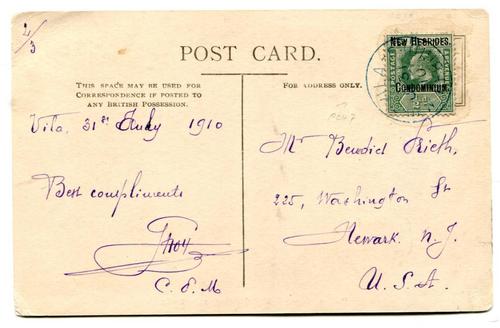 2/3
POST CARD.
THIS SPACE MAY BE USED FOR
CORRESPONDENCE IF POSTED TO
ANY BRITISH POSSESSION.
FOR ADDRESS ONLY.
NEW HEBRIDES.
CONDOMINIUM.
Vila, 31st July 1910
Best compliments
C. S. M
Mr Benedict Rieth,
225, Washington St
Newark. N. J.
U. S. A.